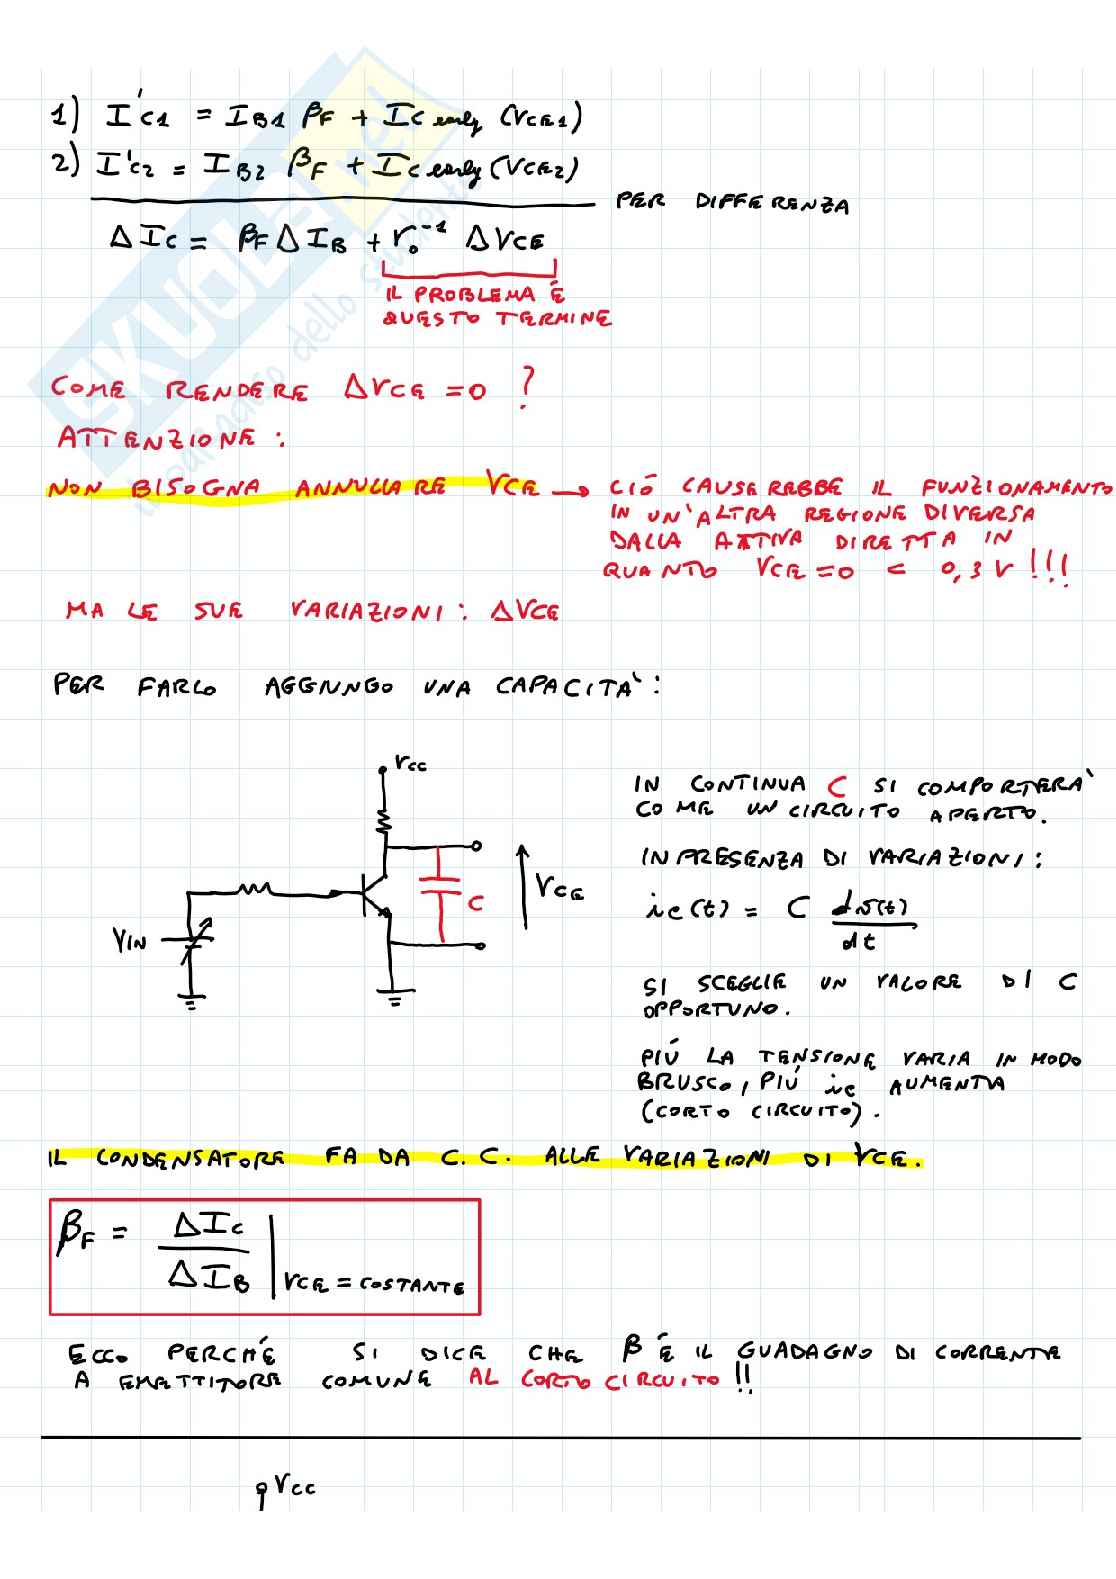 1) I'C1 = IB1 βF + IC early (VCE1)
2) I'C2 = IB2 βF + IC early (VCE2)
PER DIFFERENZA
ΔIC = βF ΔIB + r₀⁻¹ ΔVCE
IL PROBLEMA È
QUESTO TERMINE
COME RENDERE ΔVCE = 0 ?
ATTENZIONE :
NON BISOGNA ANNULLARE VCE → CIÓ CAUSEREBBE IL FUNZIONAMENTO
IN UN'ALTRA REGIONE DIVERSA
DALLA ATTIVA DIRETTA IN
QUANTO VCE = 0 < 0,3 V !!!
MA LE SUE VARIAZIONI : ΔVCE
PER FARLO AGGIUNGO UNA CAPACITA' :
VCC
C
VCE
VIN
IN CONTINUA C SI COMPORTERA'
COME UN CIRCUITO APERTO.
IN PRESENZA DI VARIAZIONI :
ic(t) = C dv(t)/dt
SI SCEGLIE UN VALORE DI C
OPPORTUNO.
PIÚ LA TENSIONE VARIA IN MODO
BRUSCO, PIÚ ic AUMENTA
(CORTO CIRCUITO).
IL CONDENSATORE FA DA C.C. ALLE VARIAZIONI DI VCE.
βF = ΔIC/ΔIB | VCE = COSTANTE
ECCO PERCHÉ SI DICE CHE β É IL GUADAGNO DI CORRENTE
A EMETTITORE COMUNE AL CORTO CIRCUITO !!
VCC
SKUOLA.net